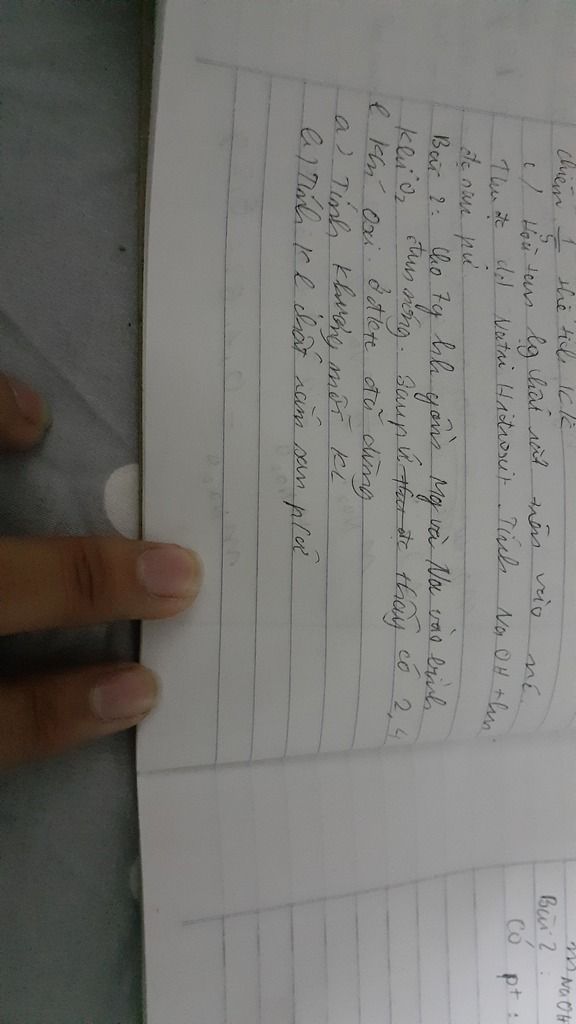 chiếm 1/5 thể tích kk
c) Hoà tan lg chất rắn trên vào nc
Thu đc dd Natri Hiđroxit. Tính NaOH thu
đc sau pư
Bài 2: Cho 7g hh gồm Mg và Na vào bình
khí O2 đun nóng. Sau pư thấy có 2,4
l khí oxi. ở đktc đã dùng
a) Tính khượng mỗi KL
b) Tính K l chất rắn sau pứ
m NaOH
Bài 2:
có pt: